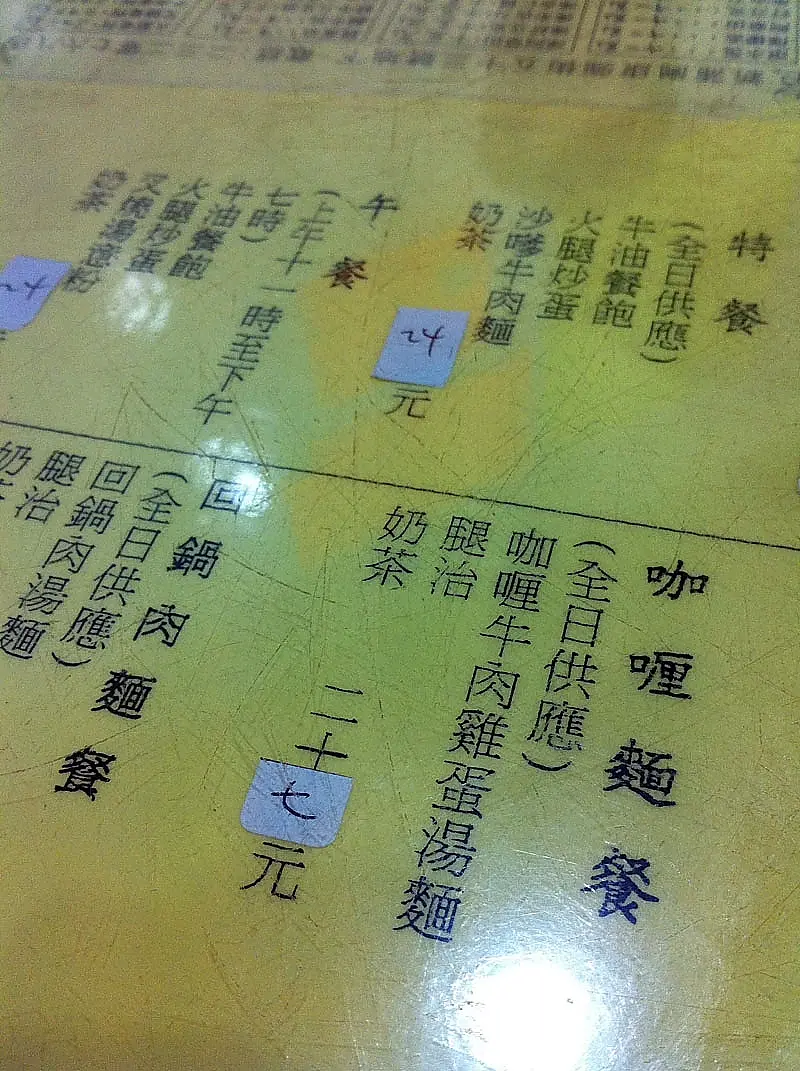 特餐
（全日供應）
牛油餐飽
火腿炒蛋
沙嗲牛肉麵
奶茶
24元
午餐
（上午十一時至下午
七時）
牛油餐飽
火腿炒蛋
叉燒湯意粉
奶茶
24
咖喱麵餐
（全日供應）
咖喱牛肉雞蛋湯麵
腿治
奶茶
二十七元
回鍋肉麵餐
（全日供應）
回鍋肉湯麵
腿治
奶茶